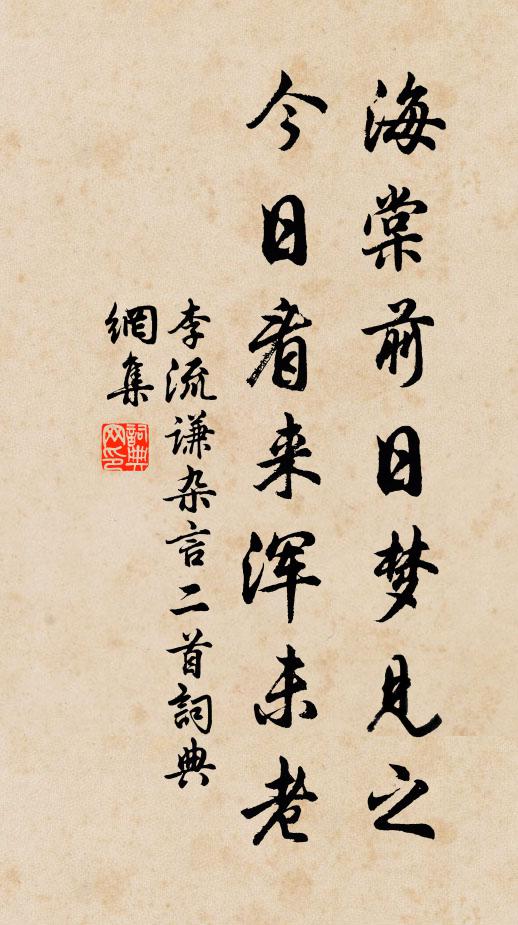 海棠前日梦见之
今日看来浑未老
李流谦杂言二首詞典
網集
詞典
网印